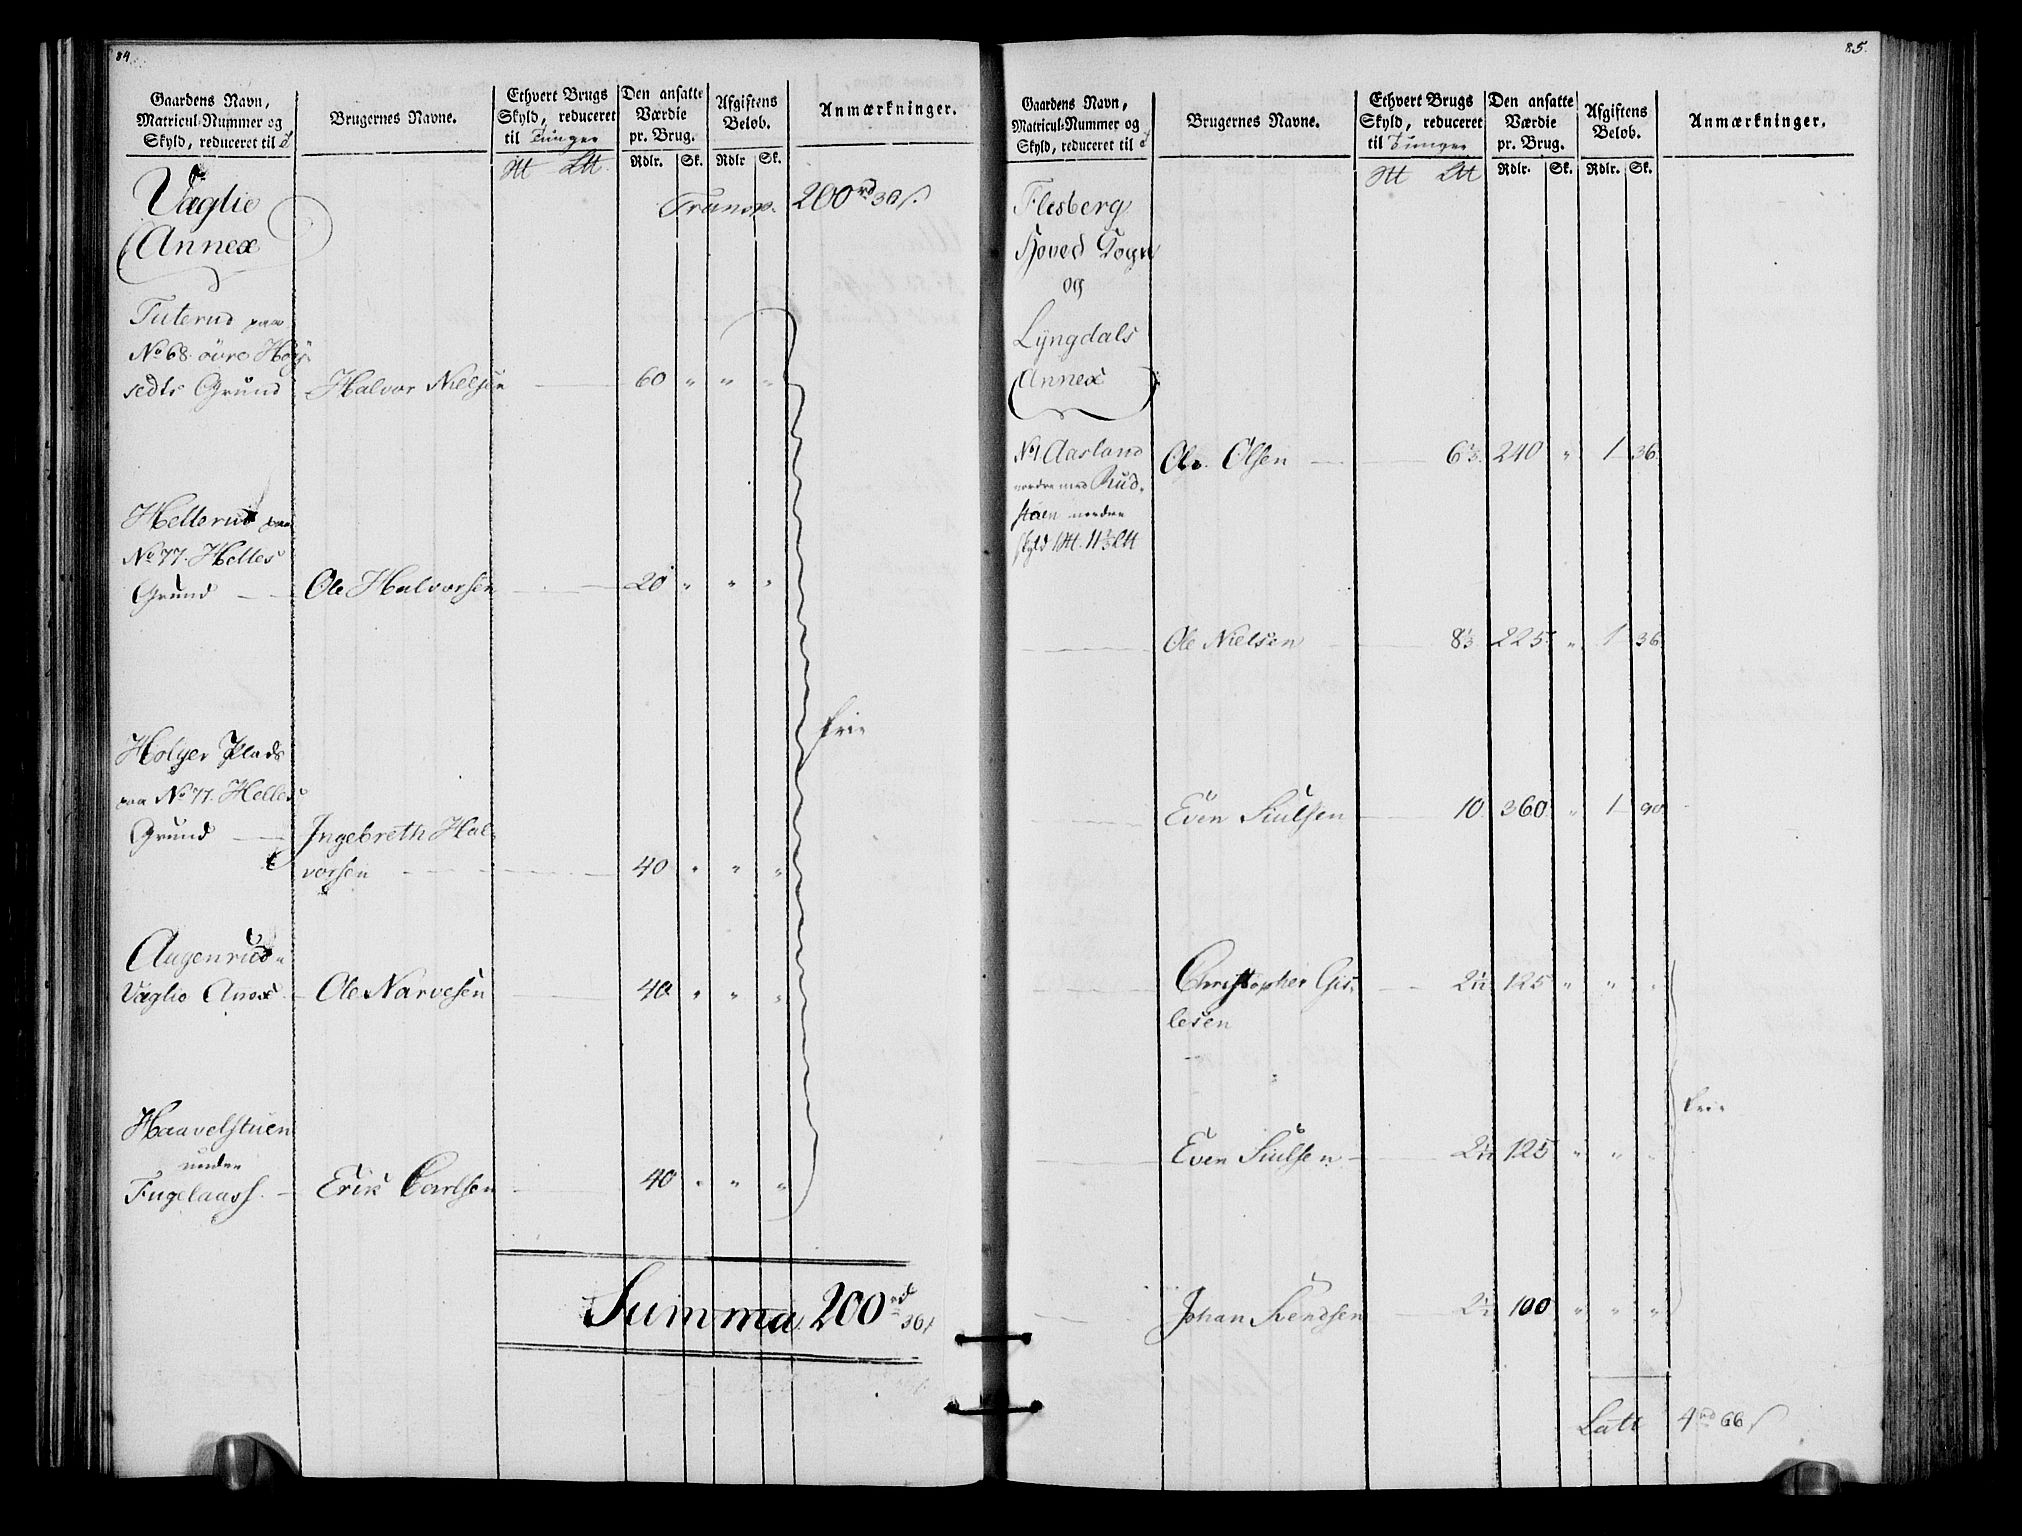 84.
Gaardens Navn,
Matricul-Nummer og
Skyld, reduceret til
Brugernes Navne.
Ethvert Brugs
Skyld, reduceret
til Tunger
Den ansatte
Værdie
pr. Brug.
Afgiftens
Beløb.
Anmærkninger.
Rdlr. Sk. Rdlr Sk.
Væglie
Annex
Transp. 200 rd 30 s.
Tuterud paa
No 68. övre Höy-
sedts Grund Halvor Nielsen 60 " " "
Hellerud paa
No 77. Helles
Grund Ole Halvorsen 20 " " "
Holger Plads
paa No 77. Helles
Grund Ingebreth Hal-
vorsen 40 " " "
frie
Augenrud
Væglie Anex Ole Narvesen 40 " " "
Haavelstuen
under
Fugelaas Erik Carlsen 40 " " "
Summa 200 rd 30 s
85.
Gaardens Navn,
Matricul-Nummer og
Skyld, reduceret til
Brugernes Navne.
Ethvert Brugs
Skyld, reduceret
til Tunger
Den ansatte
Værdie
pr. Brug.
Afgiftens
Beløb.
Anmærkninger.
Rdlr. Sk. Rdlr. Sk.
Flesberg
Hoved Sogn
og
Lÿngdals
Annex
No 1 Aasland Ole Olsen 6⅔ 240 " 1 36
nordre med Rud-
stuen nordre
skyld
Ole Nielsen 8⅓ 225 " 1 36
Even Siulsen 10 360 " 1 90
Christopher Gis-
lesen 2½ 125 " " "
frie
Even Siulsen 2½ 125 " " "
Johan Svendsen 2½ 100 " " "
Latt 4 rd 66 s